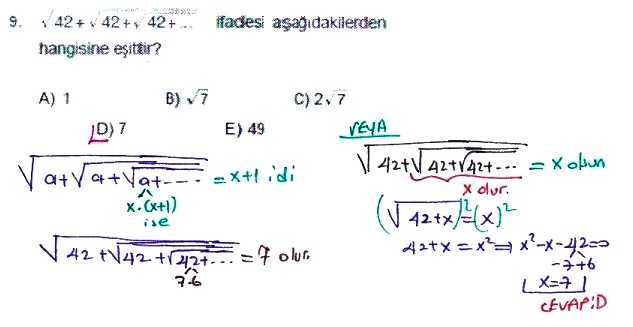 9. √42+√42+√42+... ifadesi aşağıdakilerden
hangisine eşittir?
A) 1 B) √7 C) 2√7
D) 7 E) 49
√a+√a+√a+---- = x+1 idi
x.(x+1)
ise
√42+√42+√42+... = 7 olur.
7.6
VEYA
√42+√42+√42+... = x olsun
x olur.
(√42+x)²=(x)²
42+x = x² ⇒ x²-x-42=0
-7+6
x=7
CEVAP:D